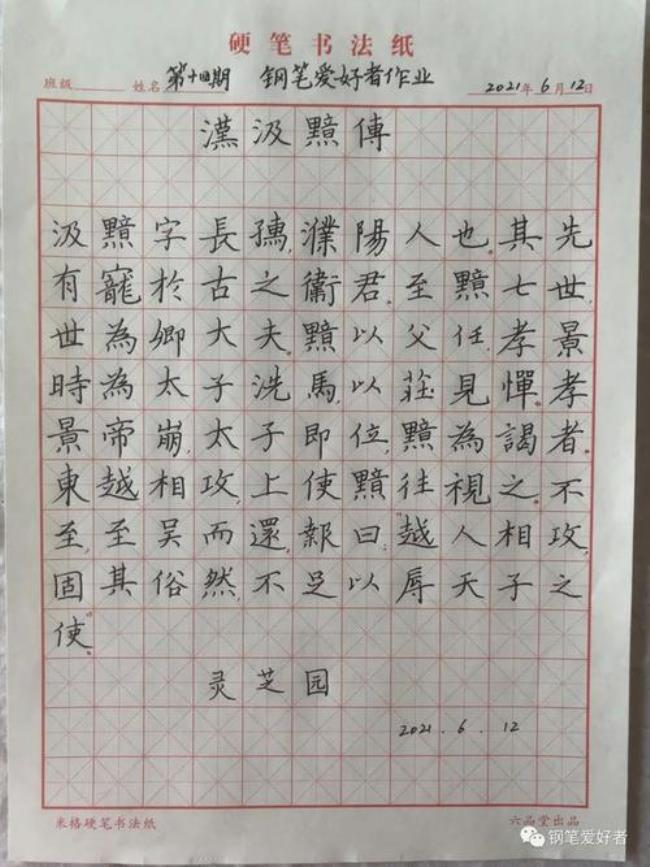 硬笔书法纸
班级 姓名 第十四期 钢笔爱好者作业 2021年6月12日
漢汲黯傳
汲黯字長孺,濮陽人也。其先
有寵於古之衛君。至黯七世,
世為卿大夫。黯以父任,孝景
時為太子洗馬,以莊見憚。孝
景帝崩,太子即位,黯為謁者。
東越相攻,上使黯往視之。不
至,至吴而還,報曰:“越人相攻,
固其俗然,不足以辱天子之
使。”
灵芝园
2021.6.12
米格硬笔书法纸 六品堂出品
钢笔爱好者